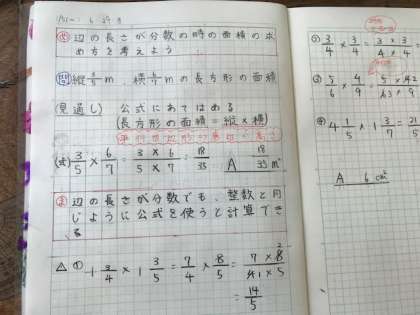 め 辺の長さが分数の時の面積の求
め方を考えよう
問 縦3/5m、横6/7mの長方形の面積
(見通し) 公式にあてはめる
(長方形の面積=縦×横)
(式) 3/5 × 6/7 = 3×6/5×7 = 18/35 A 18/35 m²
ま 辺の長さが分数でも、整数と同
じように公式を使うと計算でき
る
△ ① 1 3/4 × 1 3/5 = 7/4 × 8/5 = 7×8/4×5
= 14/5
3/4 × 3/4 = 3×3/4×4
5/6 × 4/9
4 1/5 × 1 3/7 = 21/5
A 6 cm²